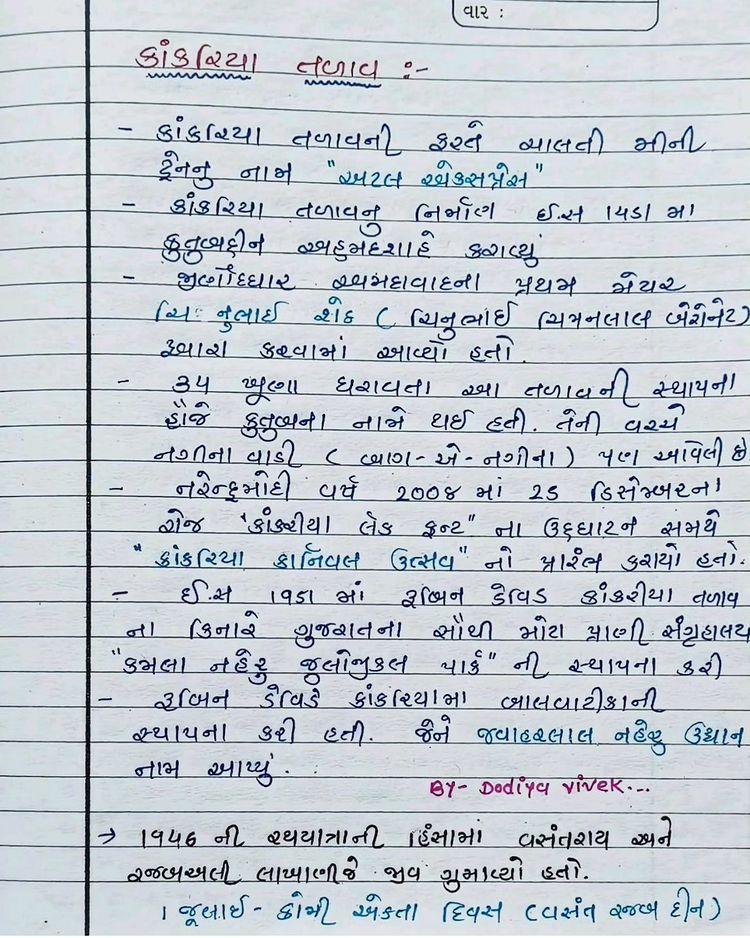 વાર :
કાંકરિયા તળાવ :-
- કાંકરિયા તળાવની ફરતે ચાલતી મીની
ટ્રેનનુ નામ "અટલ એકસપ્રેસ"
- કાંકરિયા તળાવનુ નિર્માણ ઈ.સ ૧૪૫૧ મા
કુતુબદ્દીન અહમદશાહે કરાવ્યું
- જીર્ણોધ્ધાર અમદાવાદના પ્રથમ મેયર
ચિ. નુભાઈ શેઠ ( ચિનુભાઈ ચિમનલાલ બેરોનેટ)
દ્વારા કરવામાં આવ્યો હતો.
- ૩૫ ખૂણા ધરાવતા આ તળાવની સ્થાપના
હૌજે કુતુબના નામે થઈ હતી. તેની વચ્ચે
નગીના વાડી ( બાગ-એ-નગીના ) પણ આવેલી છે
- નરેન્દ્રમોદી વર્ષે ૨૦૦૪ માં ૨૫ ડિસેમ્બરના
રોજ "કાંકરીયા લેક ફ્રન્ટ" ના ઉદ્દઘાટન સમયે
"કાંકરિયા કાર્નિવલ ઉત્સવ" નો પ્રારંભ કરાયો હતો.
- ઈ.સ ૧૯૫૧ માં રૂબિન ડેવિડ કાંકરીયા તળાવ
ના કિનારે ગુજરાતના સૌથી મોટા પ્રાણી સંગ્રહાલય
"કમલા નહેરુ જુલોજીકલ પાર્ક" ની સ્થાપના કરી
- રૂબિન ડેવિડે કાંકરિયામા બાલવાટીકાની
સ્થાપના કરી હતી. જેને જવાહરલાલ નહેરુ ઉદ્યાન
નામ આપ્યું.
By- Dodiya vivek...
→ ૧૯૪૬ ની રથયાત્રાની હિંસામાં વસંતરાય અને
રજબઅલી લાખાણીજે જીવ ગુમાવ્યો હતો.
૧ જૂલાઈ - કોમી એકતા દિવસ (વસંત રજબ દીન)